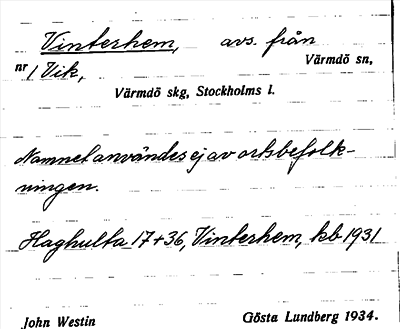 Vinterhem, avs. från
nr 1 Vik, Värmdö sn,
Värmdö skg, Stockholms l.
Namnet användes ej av ortsbefolk-
ningen.
Haghulta 17+36, Vinterhem, kb 1931
John Westin Gösta Lundberg 1934.